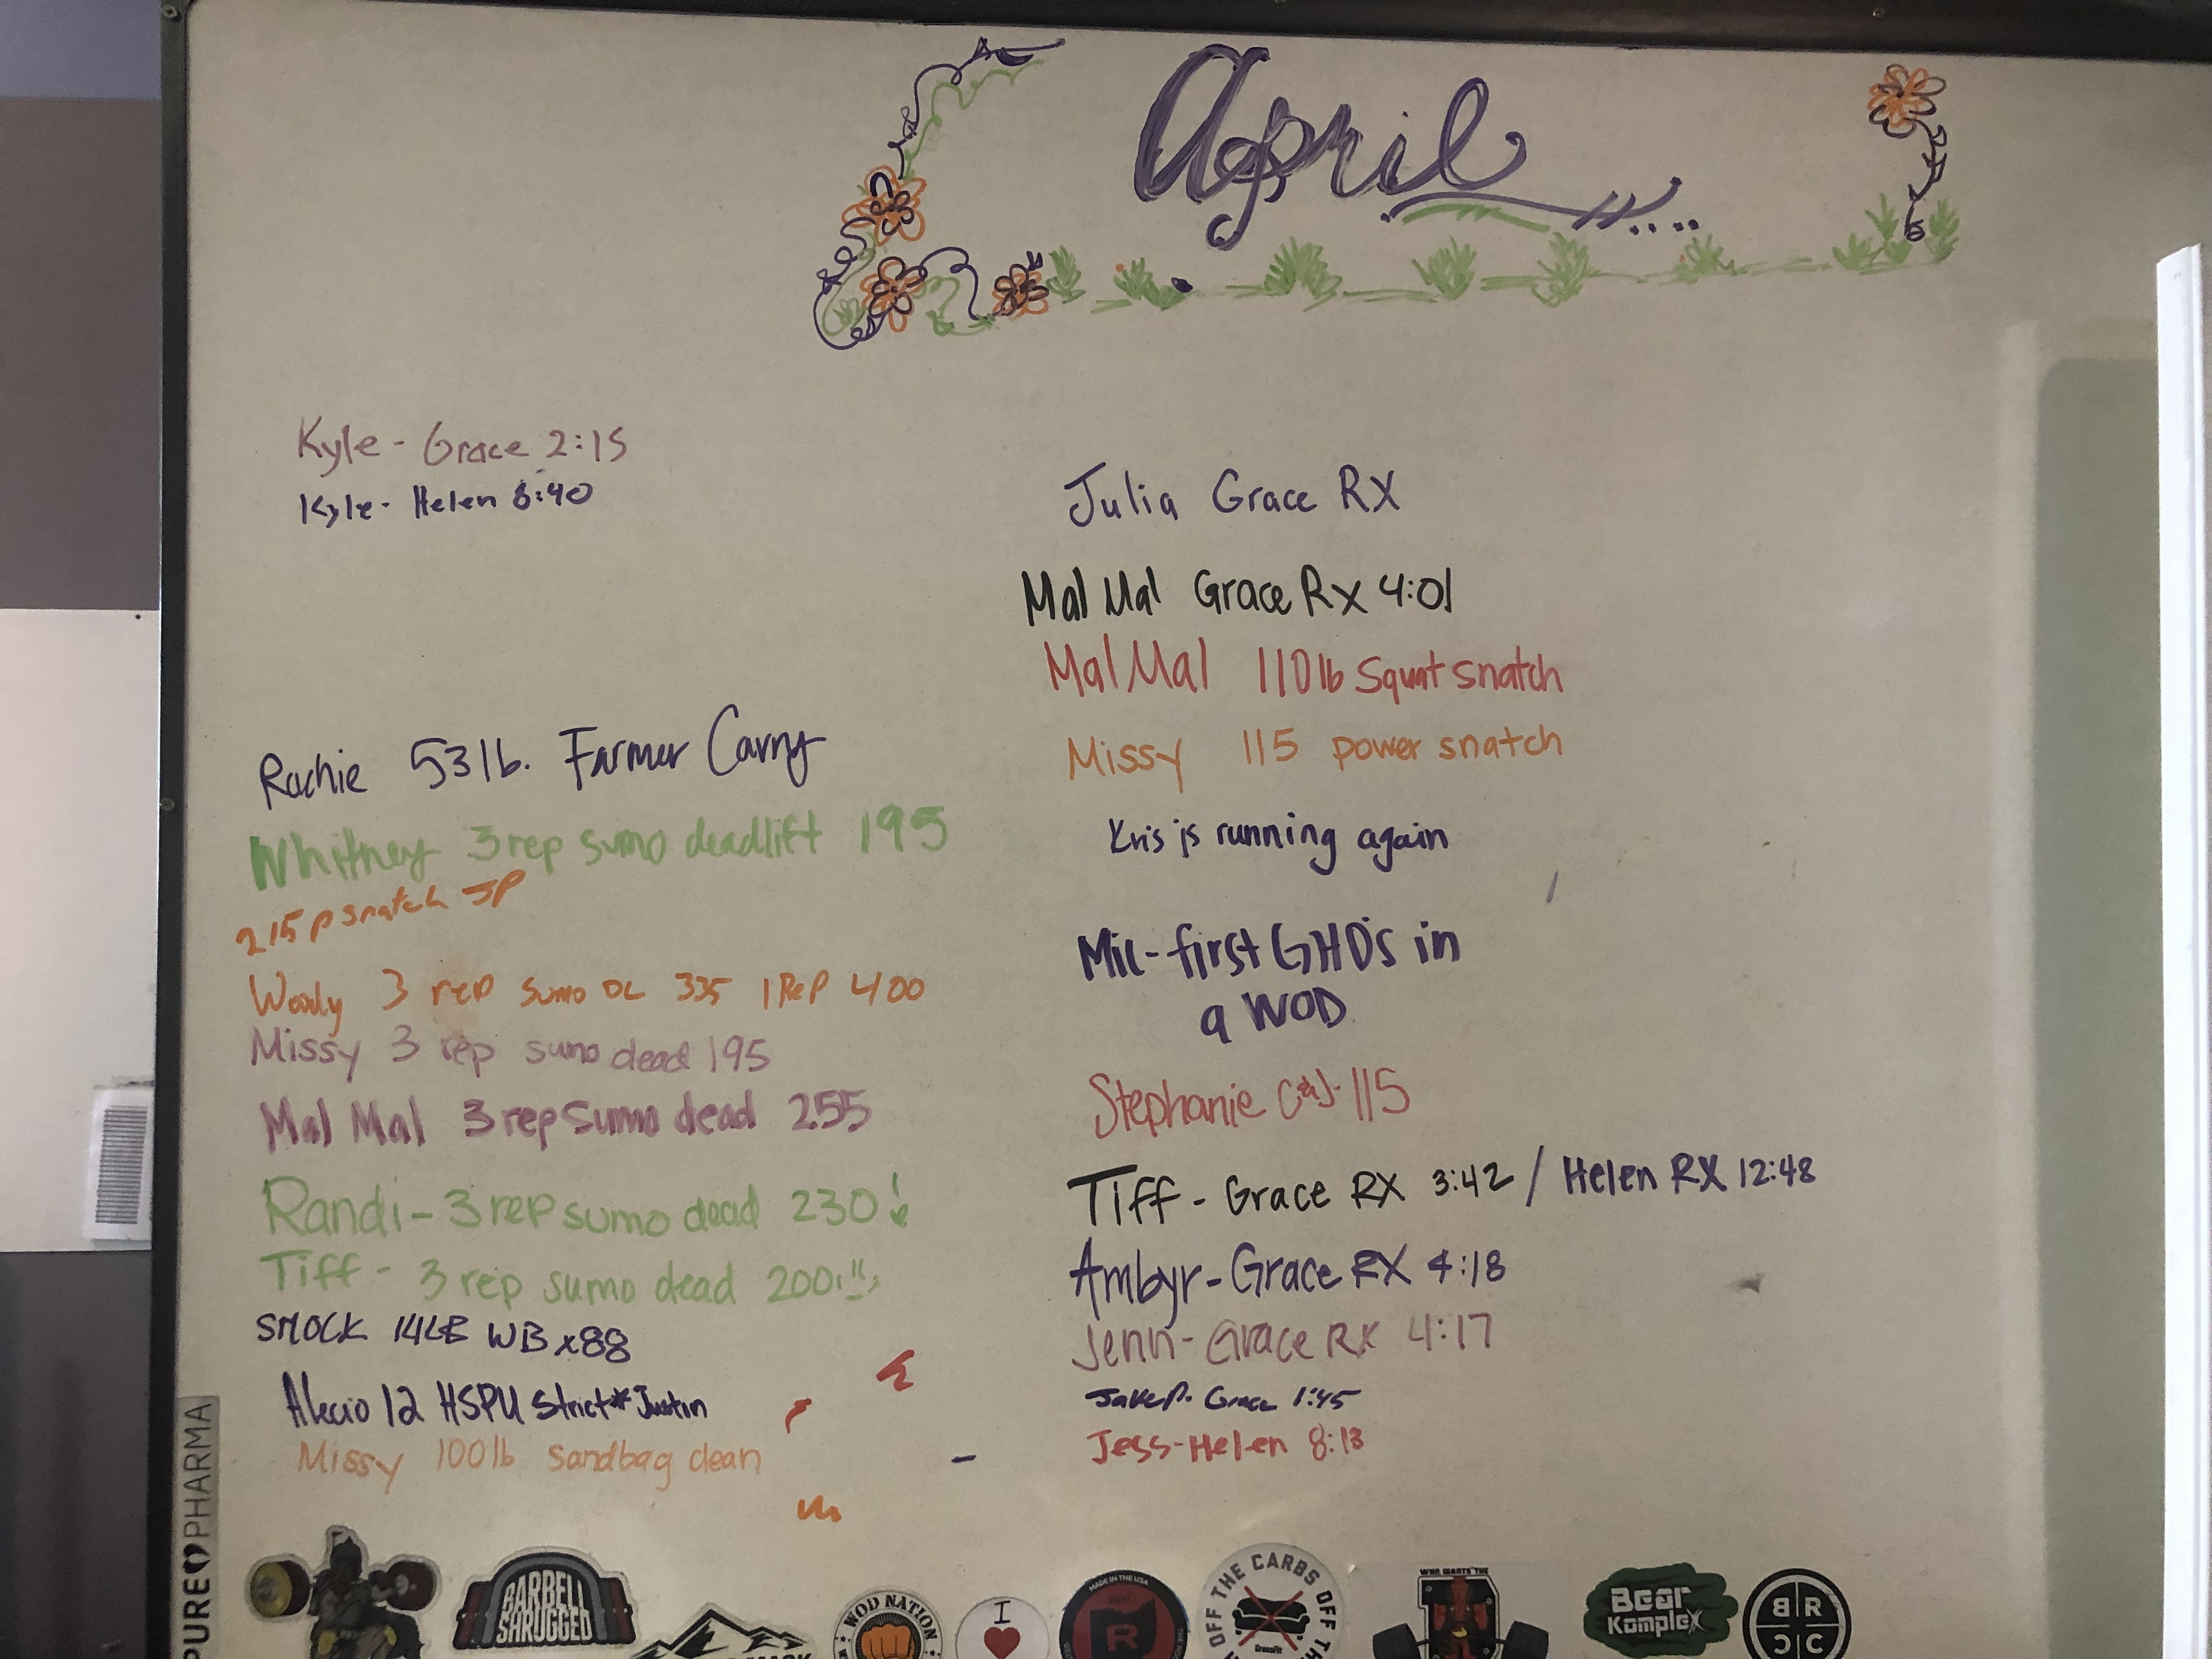 April
Kyle - Grace 2:15
Kyle - Helen 8:40
Rachie 53 lb. Farmer Carry
Whitney 3 rep sumo deadlift 195
215 p snatch JP
Woody 3 rep sumo DL 335 1 Rep 400
Missy 3 rep sumo dead 195
Mal Mal 3 rep sumo dead 255
Randi - 3 rep sumo dead 230!
Tiff - 3 rep sumo dead 200!!!
SMOCK 14LB WB x88
Alecio 12 HSPU strict * Justin
Missy 100 lb sandbag clean
Julia Grace RX
Mal Mal Grace Rx 4:01
Mal Mal 110 lb Squat snatch
Missy 115 power snatch
Kris is running again
Mic - first GHD's in
a WOD
Stephanie C&J - 115
Tiff - Grace RX 3:42 / Helen RX 12:48
Ambyr - Grace RX 4:18
Jenn - Grace RX 4:17
Jake P. Grace 1:45
Jess - Helen 8:13
PURE PHARMA
BARBELL
SHRUGGED
WOD NATION
I
MADE IN THE USA
R
OFF THE CARBS OFF THE
CrossFit
WHO WANTS THE
Bear
KompleX
BR
CC